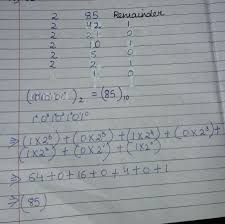 2 85 Remainder
2 42 1
2 21 0
2 10 1
2 5 0
2 2 1
1 0
(1010101)₂ = (85)₁₀
⇒ (1×2⁶) + (0×2⁵) + (1×2⁴) + (0×2³) +
(1×2²) + (0×2¹) + (1×2⁰)
⇒ 64+0+16+0+4+0+1
⇒ (85)